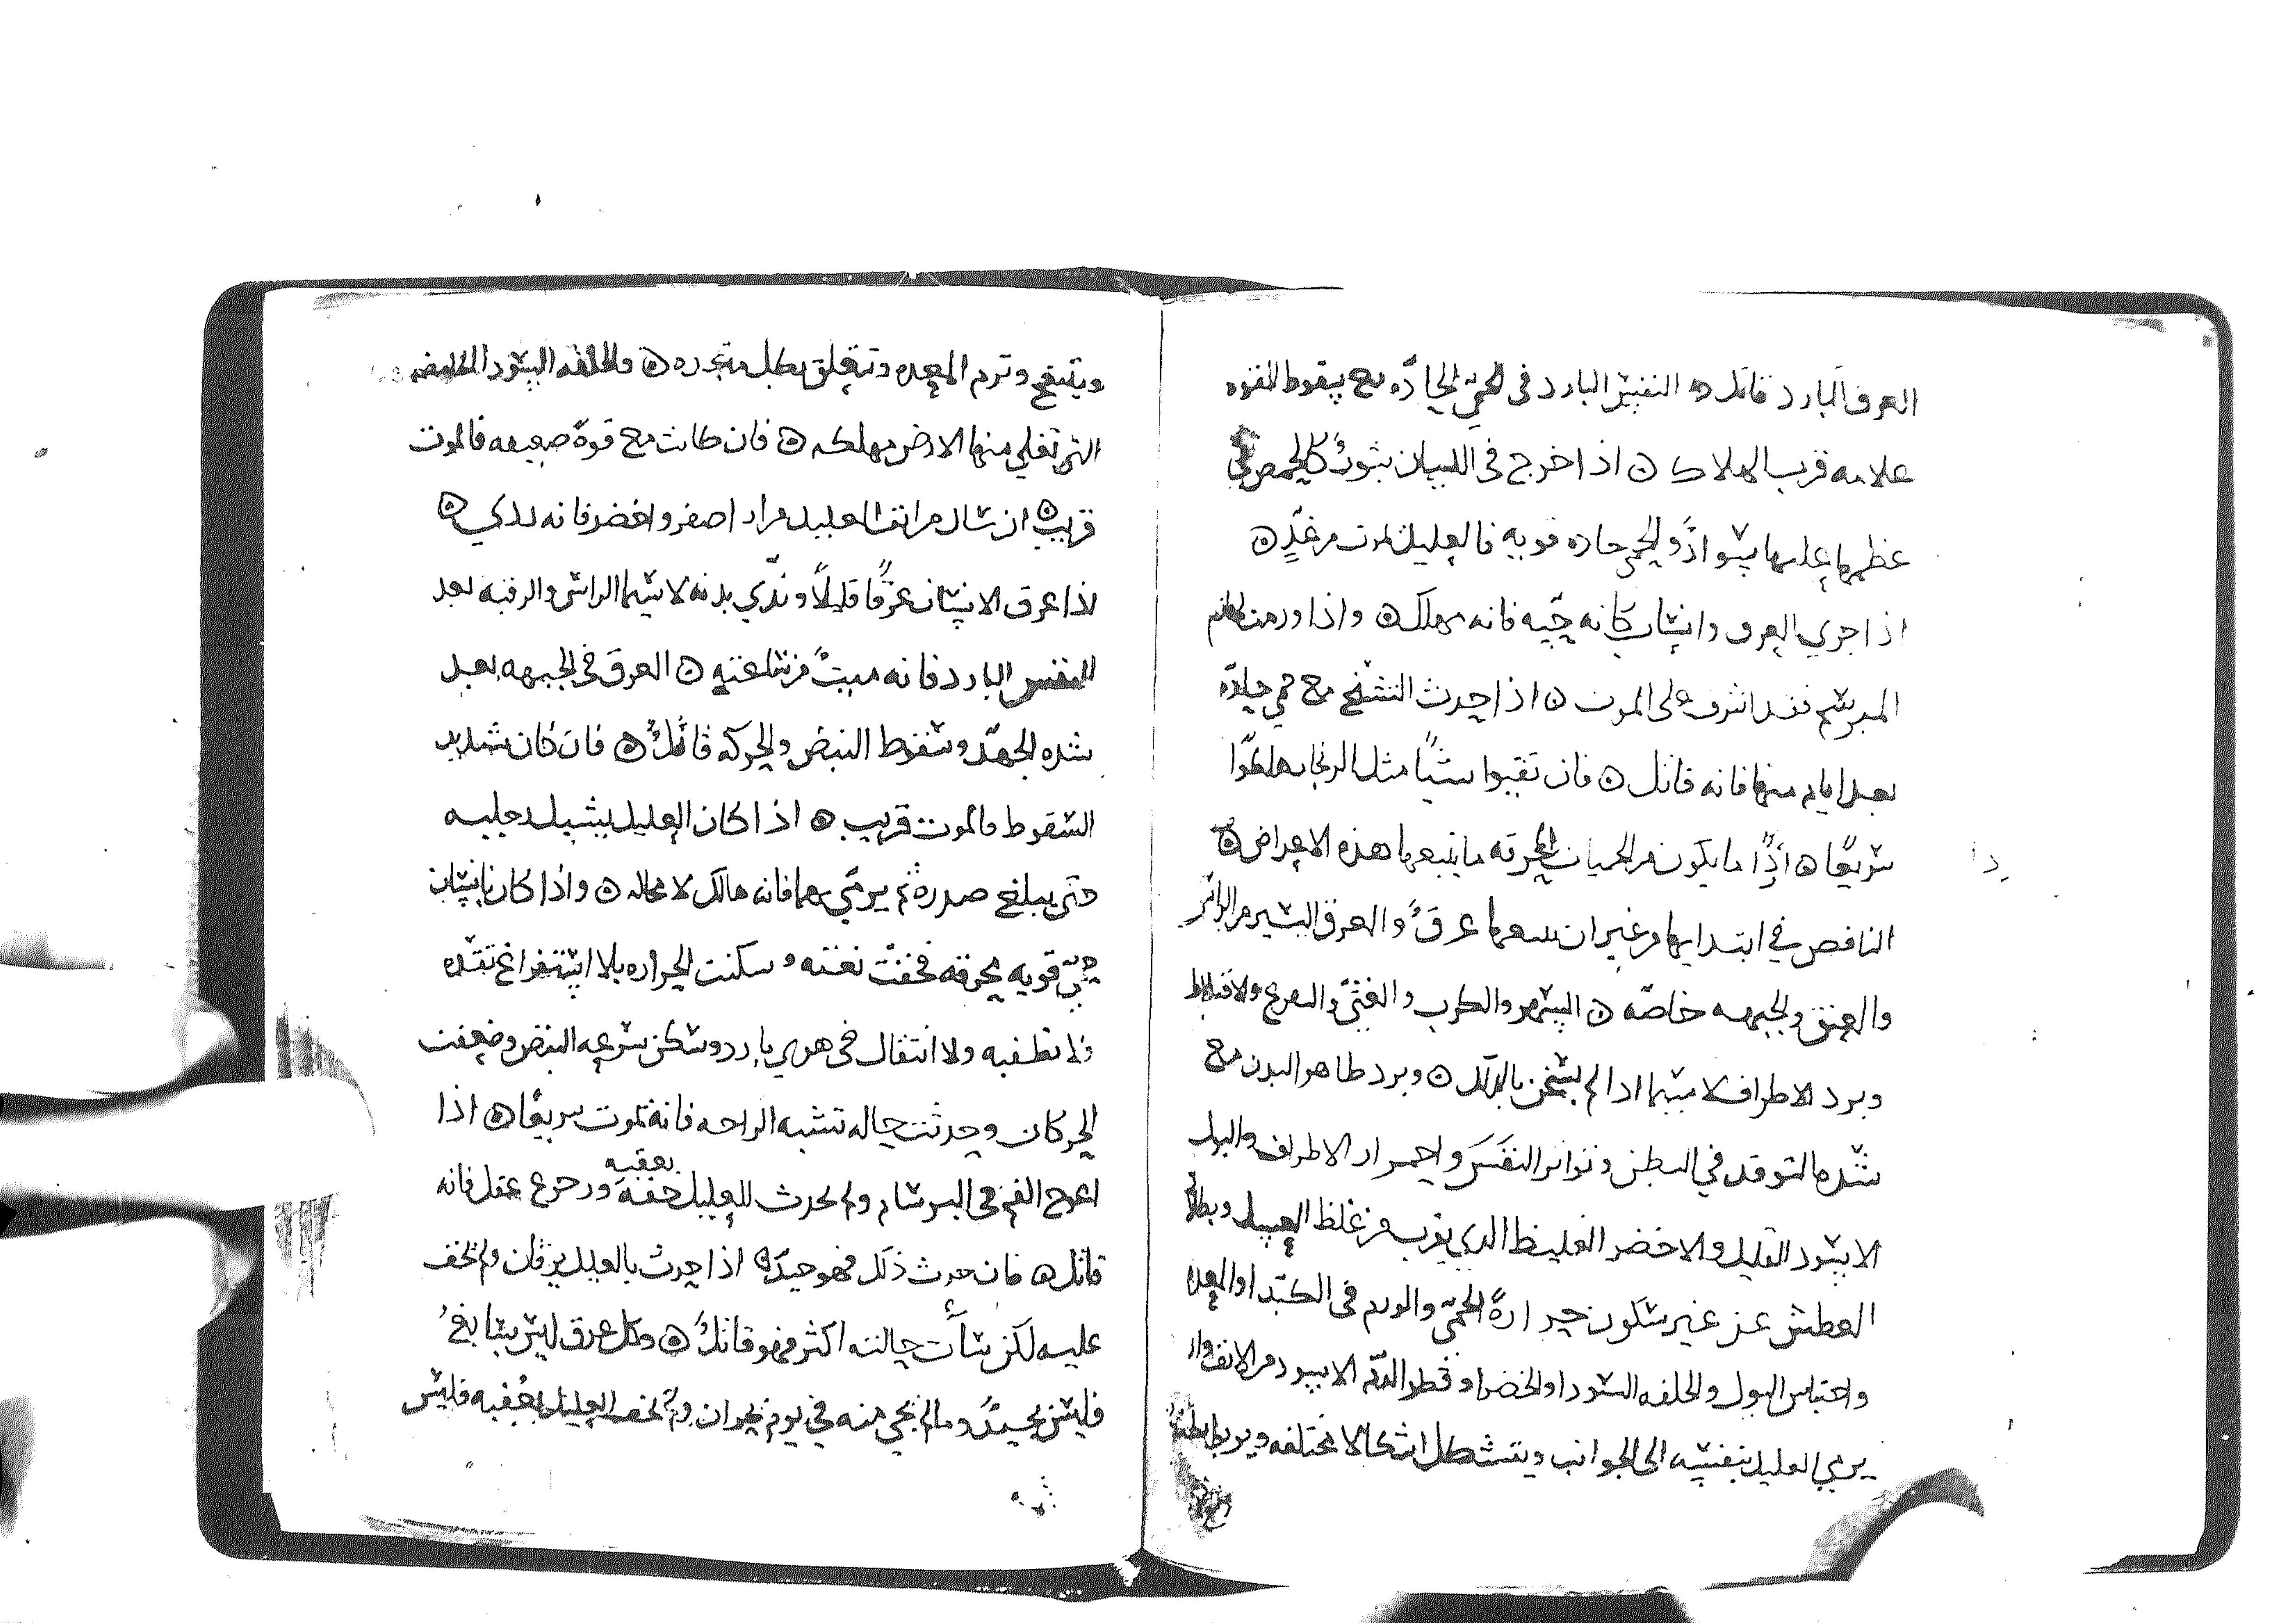 العرق البارد قاتل ه النفس البارد في الحمى الحادّه مع سقوط القوه
علامه قرب الهلاك ه اذا خرج في اللسان بثورٌ كالحمص في
عظمها عليها سوادٌ والحمى حاده قويه فالعليل يموت من غدٍ ه
اذا جري العرق وانساب كانه حيّه فانه مهلك ه واذا ورمت
المبرسم فقد اشرف على الموت ه اذا حدث التشنج مع حمي حادّه
بعد ايام منها فانه قاتل ه فان تقيوا شيًا مثل الزنجار هلكوا
سريعًا ه اردا ما يكون من الحميات المحرقه ما يتبعها هذه الاعراض ه
النافض في ابتدايها من غير ان يتبعها عرقٌ والعرق اليسير من الراس
والعنق والجبهه خاصّه ه السهر والكرب والغثي والفزع والاختلاط
وبرد الاطراف لا سيما اذا لم يسخن بالدلك ه وبرد ظاهر البدن مع
شده التوقد في البطن وتواتر النفَس واحمرار الاطراف والبول
الاسود القليل والاخضر الغليظ الذي يقرب من غلظ العسل وبطلان
العطش عن غير سكون حرارة الحمّى والورم في الكبد او المعده
واحتباس البول والخلفه السودا والخضرا وقطر الدّم الاسود من الانف وان
يرمي العليل بنفسه الى الجوانب ويتشكل اشكالا مختلفه ويربط بطنه
وينتفخ وترم المعده وتتعلق بكل متحركه ه والخلفه السودا الحامضه
التي تغلي منها الارض مهلكه ه فان كانت مع قوة ضعيفه فالموت
قريب ه ان سال من انف العليل مرار اصفر واخضر فانه ردي ه
اذا عرق الانسان عرقًا قليلاً وندّي بدنه لا سيما الراس والرقبه بعد
النفس البارد فانه ميتٌ من ساعته ه العرق في الجبهه بعد
شده الجهد وسقوط النبض والحركه قاتلٌ ه فان كان شديد
السقوط فالموت قريب ه اذا كان العليل يشيل رجليه
حتى يبلغ صدره ثم يرمي بهما فانه هالك لا محاله ه واذا كان بانسان
حمّى قويه محرقه فخفّت بغته وسكنت الحراره بلا استفراغ تقدّم
ولا تطفيه ولا انتقال في هوي بارد وسكن سرعه النبض وضعفت
الحركات وحدثت حاله تشبه الراحه فانه يموت سريعًا ه اذا
اعوج الفم في البرسام ولم يحدث للعليل خفه يعقبه ورجوع عقل فانه
قاتل ه فان حدث ذلك فهو جيد ه اذا حدث بالعليل يرقان ولم يخف
عليه لكن ساأت حالته اكثر فهو قاتلٌ ه وكل عرق ليس بسابغٌ
فليس بجيدٌ وما لم يجي منه في يوم بحران ولم يخف العليل بعقبه فليس